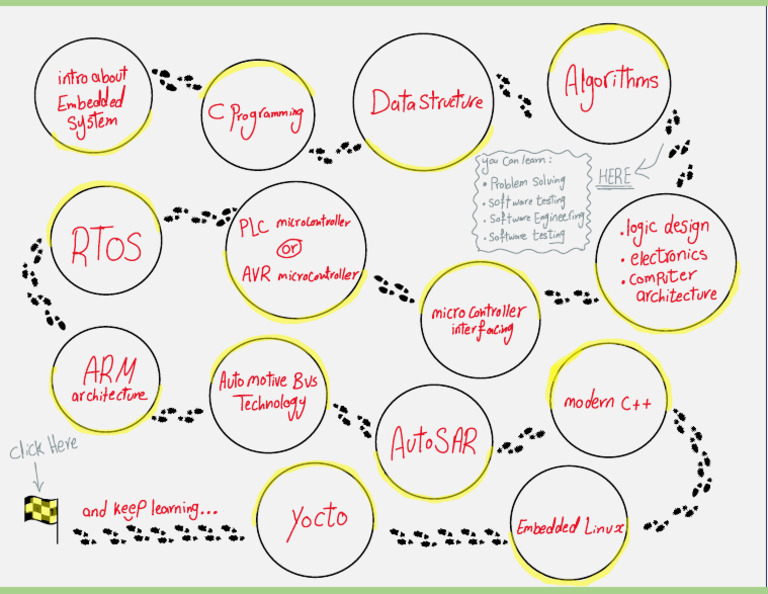 intro about
Embedded
system
C Programming
Data structure
Algorithms
you can learn:
• Problem Solving
• software testing
• Software Engineering
• Software testing
HERE
• logic design
• electronics
• computer
architecture
micro controller
interfacing
PLC microcontroller
or
AVR microcontroller
RTOS
ARM
architecture
Automotive Bus
Technology
AutoSAR
modern C++
Embedded Linux
Yocto
and keep learning...
click Here